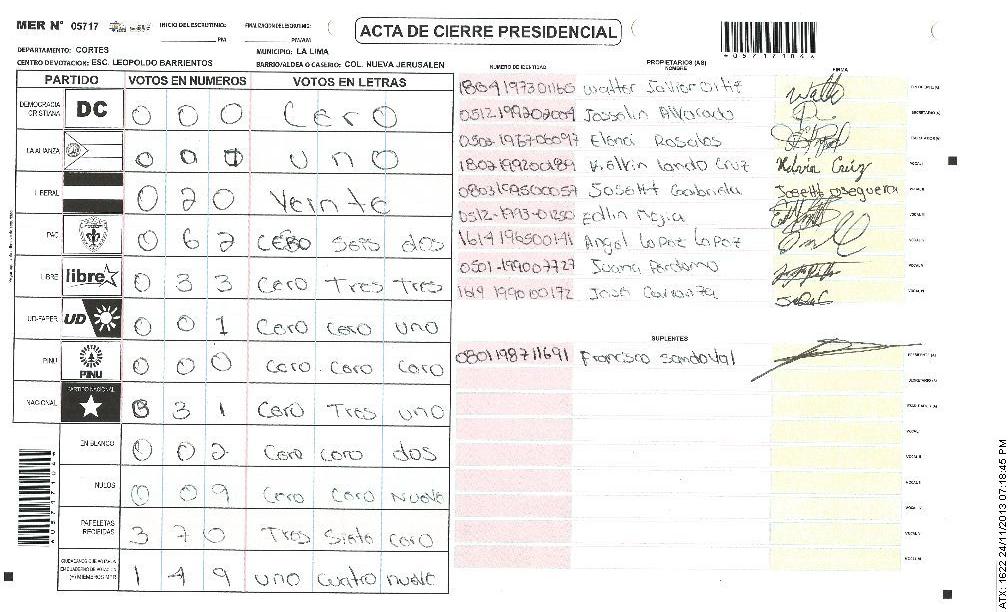 MER N° 05717 INICIO DEL ESCRUTINIO: PM FINALIZACION DEL ESCRUTINIO: PM/AM
ACTA DE CIERRE PRESIDENCIAL
DEPARTAMENTO: CORTES MUNICIPIO: LA LIMA
CENTRO DE VOTACION: ESC. LEOPOLDO BARRIENTOS BARRIO/ALDEA O CASERIO: COL. NUEVA JERUSALEN
PARTIDO VOTOS EN NUMEROS VOTOS EN LETRAS
DEMOCRACIA CRISTIANA DC 0 0 0 Cero
LA ALIANZA 0 0 1 uno
LIBERAL 0 2 0 Veinte
PAC 0 6 2 CERO seis dos
LIBRE libre 0 3 3 Cero Tres Tres
UD-FAPER UD 0 0 1 Cero cero uno
PINU PINU 0 0 0 Cero Cero Cero
NACIONAL PARTIDO NACIONAL 0 3 1 Cero Tres uno
EN BLANCO 0 0 2 Cero cero dos
NULOS 0 0 9 Cero Cero Nueve
PAPELETAS RECIBIDAS 3 7 0 Tres Siete cero
(+) MIEMBROS MER 1 4 9 uno cuatro nueve
PROPIETARIOS (AS)
NUMERO DE IDENTIDAD NOMBRE FIRMA
1804197301160 Walter Javier Ortiz
0512199202004 Josselin Alvarado
0505196706097 Elena Rosales
1802199200184 Kelvin Lando Cruz Kelvin Cruz
0803199500057 Josette Gabriela Josette Oseguera
0512-1993-01250 Edlin Mejia
1614196500141 Angel Lopez Lopez
0501-199007727 Juana Perdomo
1619 199000172 José Carranza
SUPLENTES
0801198711691 Francisco Sandoval
05717104
ATX: 1622 24/11/2013 07:18:45 PM